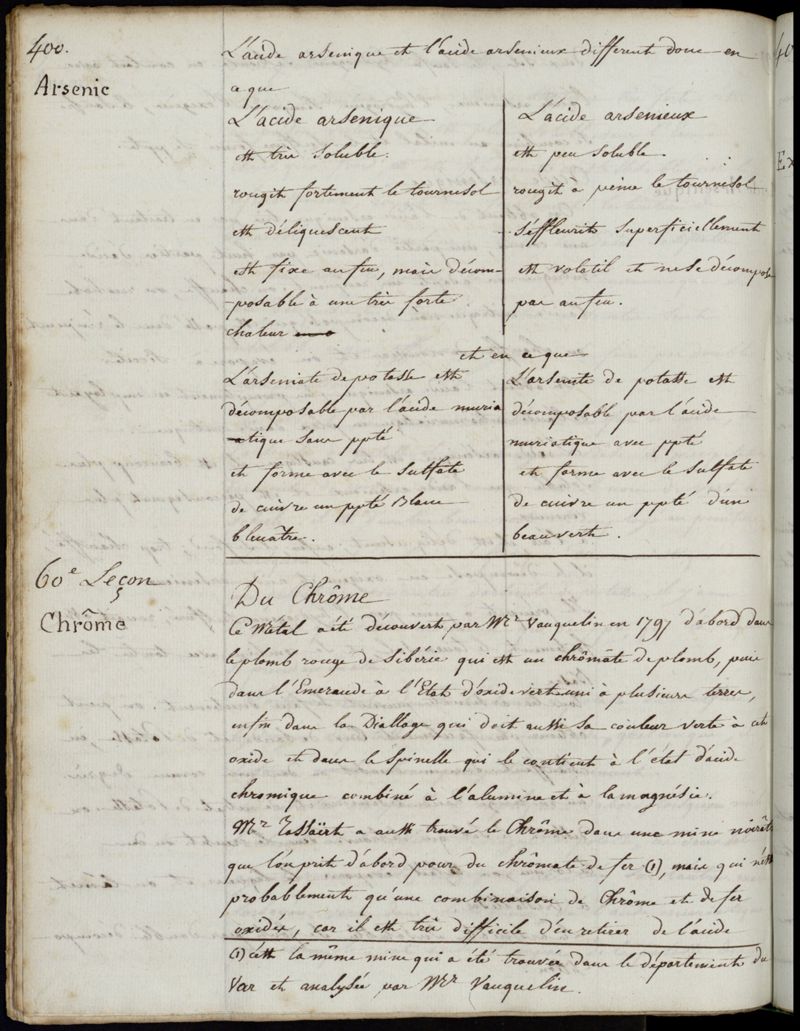 400.
Arsenic
L'acide arsenique et l'acide arsenieux different donc en
ce que
L'acide arsenique
est très soluble.
rougit fortement le tournesol
est déliquescent
est fixe au feu, mais décom-
-posable à une très forte
chaleur
L'acide arsenieux
est peu soluble.
rougit à peine le tournesol
s'éffleurit superficiellement
est volatil et ne se décompose
pas au feu.
et en ce que
L'arseniate de potasse est
décomposable par l'acide muria
tique sans ppté
et forme avec le sulfate
de cuivre un ppté Blanc
bleuâtre.
L'arsenite de potasse est
décomposable par l'acide
muriatique avec ppté
et forme avec le sulfate
de cuivre un ppté d'un
beau verte.
60e Leçon
Chrôme
Du Chrôme
Ce Métal a été découvert par Mr Vauquelin en 1797 d'abord dans
le plomb rouge de Sibérie qui est un chrômate de plomb, puis
dans l'Emeraude à l'Etat d'oxide vert uni à plusieurs terres,
enfin dans la Diallage qui doit aussi sa couleur verte à cet
oxide et dans le Spinelle qui le contient à l'état d'acide
chromique combiné à l'alumine et à la magnésie.
Mr Tassäert a aussi trouvé le Chrôme dans une mine noirâtre
que l'on prit d'abord pour du chrômate de fer (1), mais qui n'est
probablement qu'une combinaison de Chrôme et de fer
oxidés, car il est très difficile d'en retirer de l'acide
(1) c'est la même mine qui a été trouvée dans le département du
Var et analysée par Mr Vauquelin.